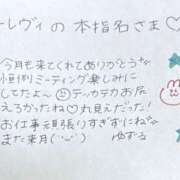 ーレヴィの本指名さま♡
今月も来てくれてありがとう
恒例ミーティング楽しみに
してたよ〜☺テッカテカのお店
えろかったね♡丸見えだった!
お仕事頑張りすぎずにね
また来月(˙ᵕ˙) ゆずる